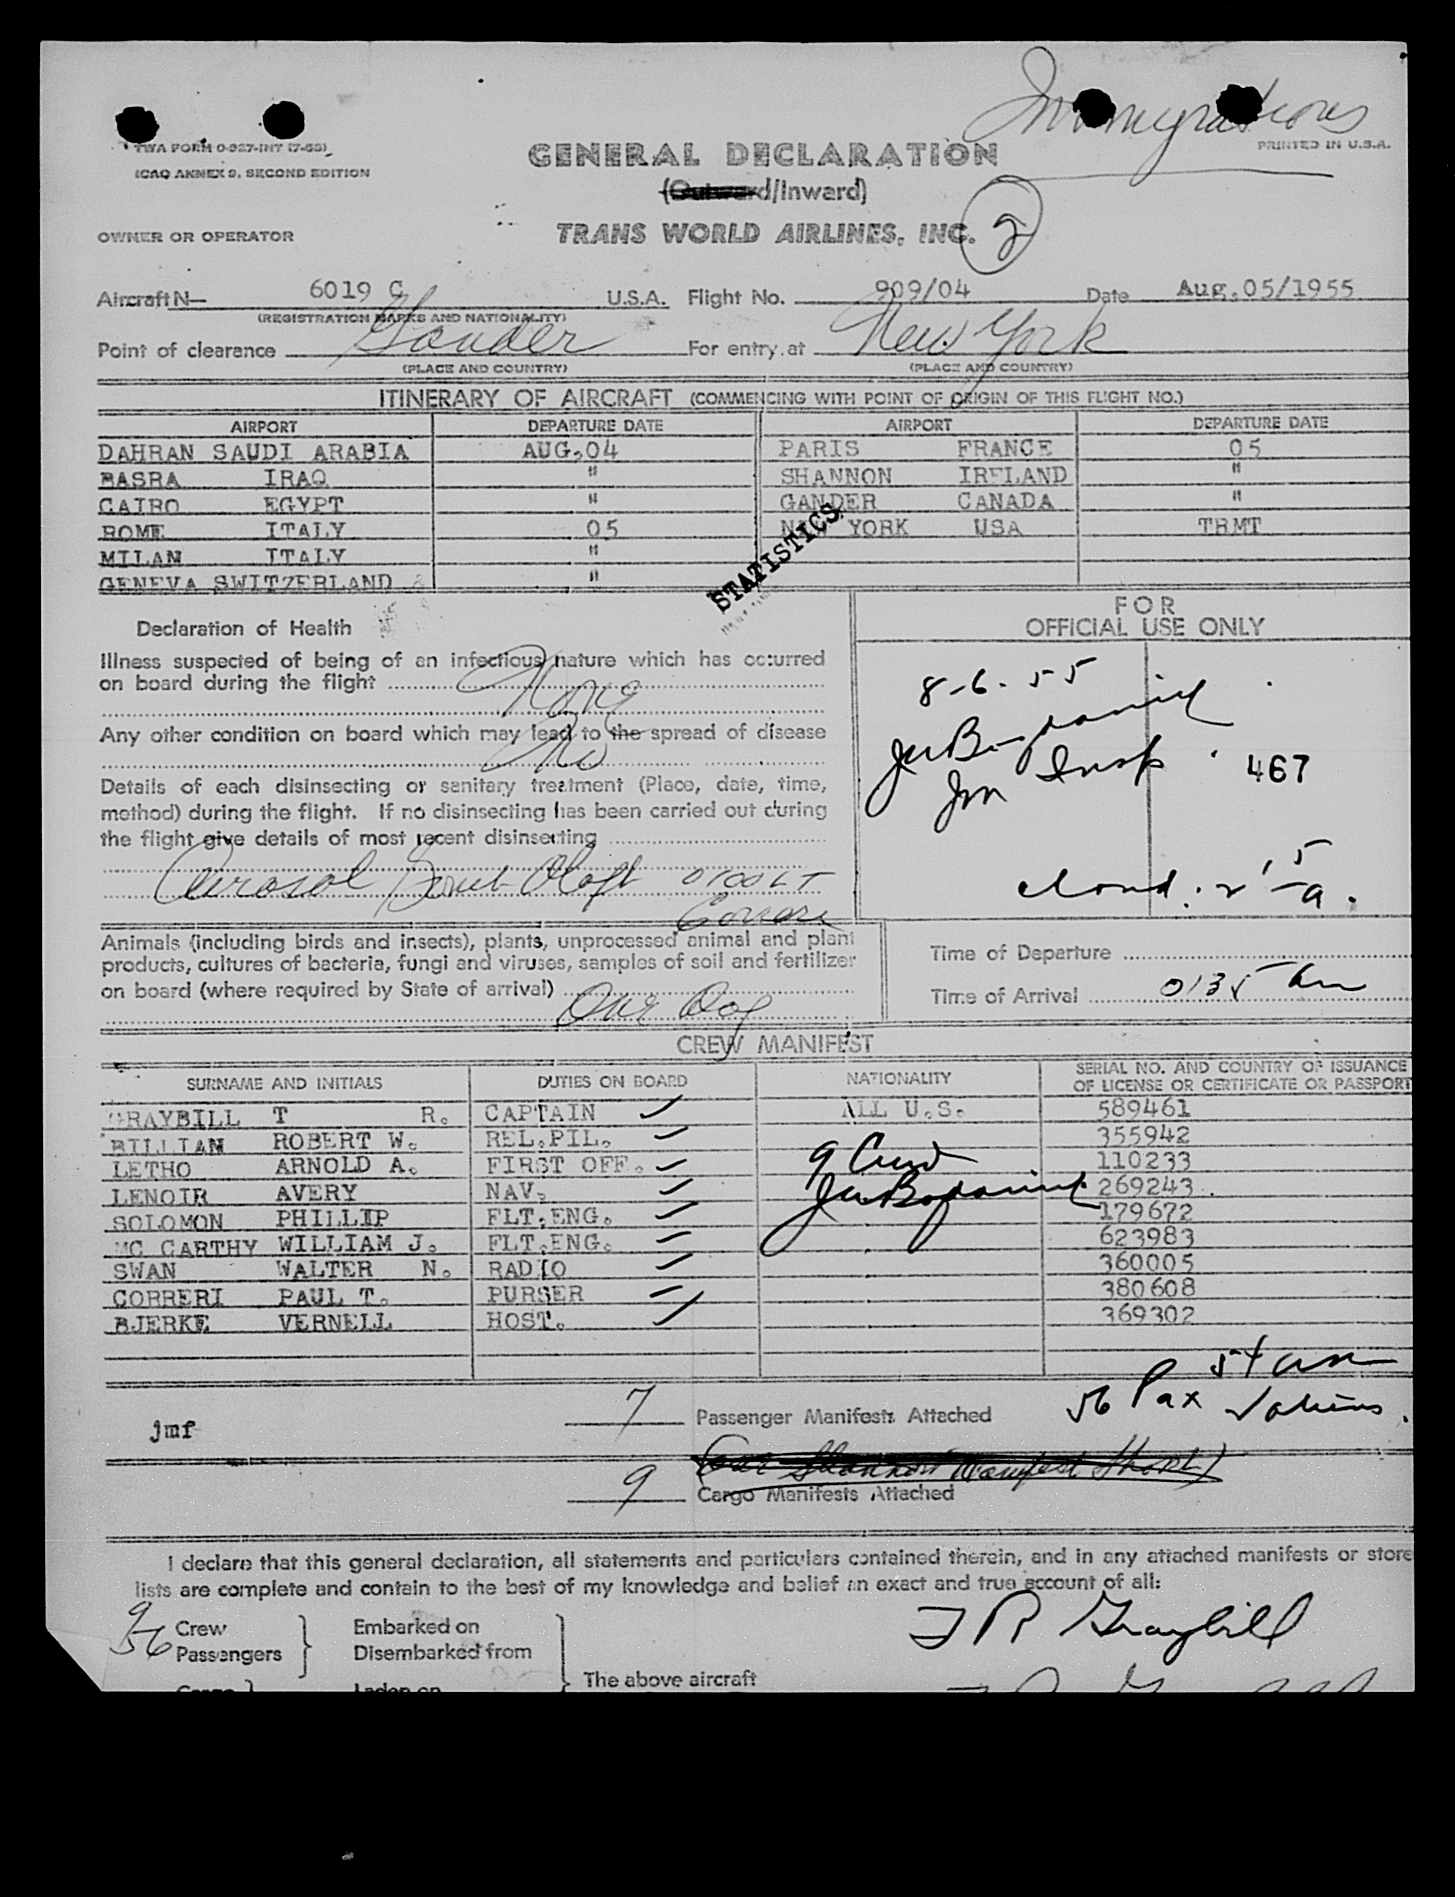 Immigrations
TWA FORM 0-927-INT (7-53)
ICAO ANNEX 9, SECOND EDITION
PRINTED IN U.S.A.
GENERAL DECLARATION
(Outward/Inward)
OWNER OR OPERATOR
TRANS WORLD AIRLINES, INC. 2
Aircraft N— 6019 C U.S.A. Flight No. 909/04 Date Aug. 05/1955
(REGISTRATION MARKS AND NATIONALITY)
Point of clearance Gander For entry at New York
(PLACE AND COUNTRY) (PLACE AND COUNTRY)
ITINERARY OF AIRCRAFT (COMMENCING WITH POINT OF ORIGIN OF THIS FLIGHT NO.)
AIRPORT DEPARTURE DATE AIRPORT DEPARTURE DATE
DAHRAN SAUDI ARABIA AUG.04 PARIS FRANCE 05
BASRA IRAQ " SHANNON IRELAND "
CAIRO EGYPT " GANDER CANADA "
ROME ITALY 05 NEW YORK USA TRMT
MILAN ITALY "
GENEVA SWITZERLAND "
STATISTICS
Declaration of Health
FOR
OFFICIAL USE ONLY
Illness suspected of being of an infectious nature which has occurred
on board during the flight None
Any other condition on board which may lead to the spread of disease
No
Details of each disinsecting or sanitary treatment (Place, date, time,
method) during the flight. If no disinsecting has been carried out during
the flight give details of most recent disinsecting
Aerosol Bomb Aloft 0100 LT
8-6-55
Insp 467
Imm
Animals (including birds and insects), plants, unprocessed animal and plant
products, cultures of bacteria, fungi and viruses, samples of soil and fertilizer
on board (where required by State of arrival) One Dog
Time of Departure
Time of Arrival 0135 Am
CREW MANIFEST
SURNAME AND INITIALS DUTIES ON BOARD NATIONALITY SERIAL NO. AND COUNTRY OF ISSUANCE
OF LICENSE OR CERTIFICATE OR PASSPORT
GRAYBILL T R. CAPTAIN ALL U.S. 589461
BILLIAN ROBERT W. REL.PIL. 355942
LETHO ARNOLD A. FIRST OFF. 9 Crew 110233
LENOIR AVERY NAV. 269243
SOLOMON PHILLIP FLT.ENG. 179672
MC CARTHY WILLIAM J. FLT.ENG. 623983
SWAN WALTER N. RADIO 360005
CORRERI PAUL T. PURSER 380608
BJERKE VERNELL HOST. 369302
jmf
7 Passenger Manifests Attached 56 Pax
9 Cargo Manifests Attached
I declare that this general declaration, all statements and particulars contained therein, and in any attached manifests or store
lists are complete and contain to the best of my knowledge and belief an exact and true account of all:
9 Crew Embarked on
56 Passengers Disembarked from
T R Graybill
Cargo Laden on
The above aircraft